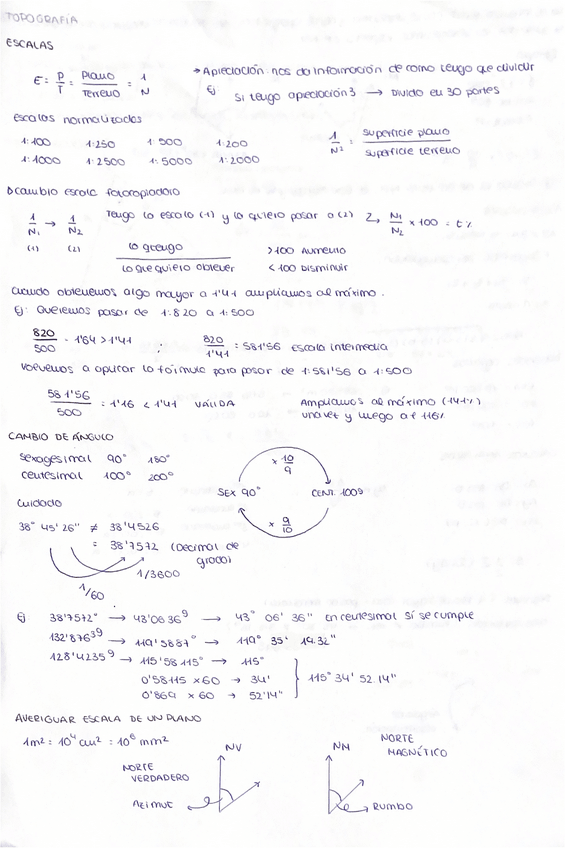 TOPOGRAFÍA
ESCALAS
E = P/T = Plano/Terreno = 1/N
→ Apreciación: nos da información de como tengo que dividir
Ej Si tengo apreciación 3 → Divido en 30 partes
escalas normalizadas
1:100 1:250 1:500 1:200
1:1000 1:2500 1:5000 1:2000
1/N² = superficie plano/superficie terreno
cambio escala fotocopiadora
1/N₁ → 1/N₂ Tengo la escala (1) y la quiero pasar a (2) N₁/N₂ × 100 = t%
(1) (2) lo q tengo/lo que quiero obtener >100 Aumento
<100 Disminuir
cuando obtenemos algo mayor a 1'41 ampliamos al máximo.
Ej: Queremos pasar de 1:820 a 1:500
820/500 = 1'64 > 1'41 ∴ 820/1'41 = 581'56 escala intermedia
volvemos a aplicar la fórmula para pasar de 1:581'56 a 1:500
581'56/500 = 1'16 < 1'41 VÁLIDA
Ampliamos al máximo (141%)
una vez y luego a t 116%
CAMBIO DE ÁNGULO
sexagesimal 90° 180°
centesimal 100° 200°
× 10/9
SEX 90° CENT. 100g
× 9/10
cuidado
38° 45' 26" ≠ 38'4526
= 38'7572 (Decimal de grado)
1/3600
1/60
Ej 38'7572° → 43'0636g → 43° 06' 36" en centesimal sí se cumple
132'8763g → 119'5887° → 119° 35' 19.32"
128'4235g → 115'58115° → 115°
0'58115 × 60 → 34'
0'869 × 60 → 52'14"
115° 34' 52.14"
AVERIGUAR ESCALA DE UN PLANO
1m² = 10⁴ cm² = 10⁶ mm²
NV
NORTE VERDADERO
Azimut
NM
NORTE MAGNÉTICO
RUMBO